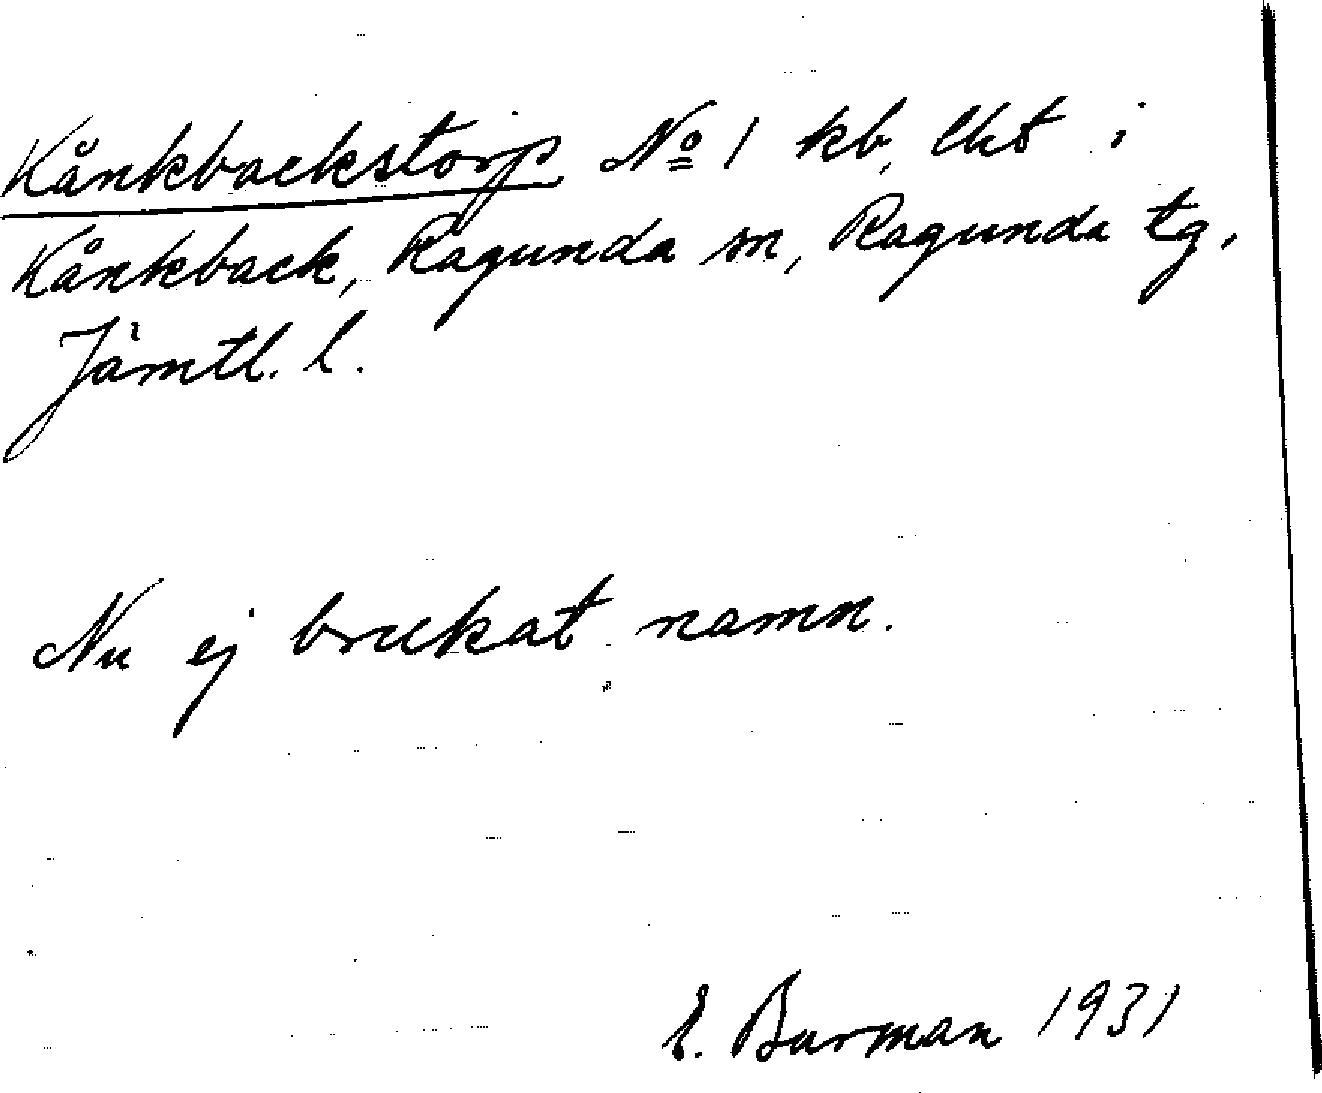 Kånkbackstorp No 1 kb, lht i
Kånkback, Ragunda sn, Ragunda tg,
Jämtl. l.
Nu ej brukat namn.
E. Burman 1931